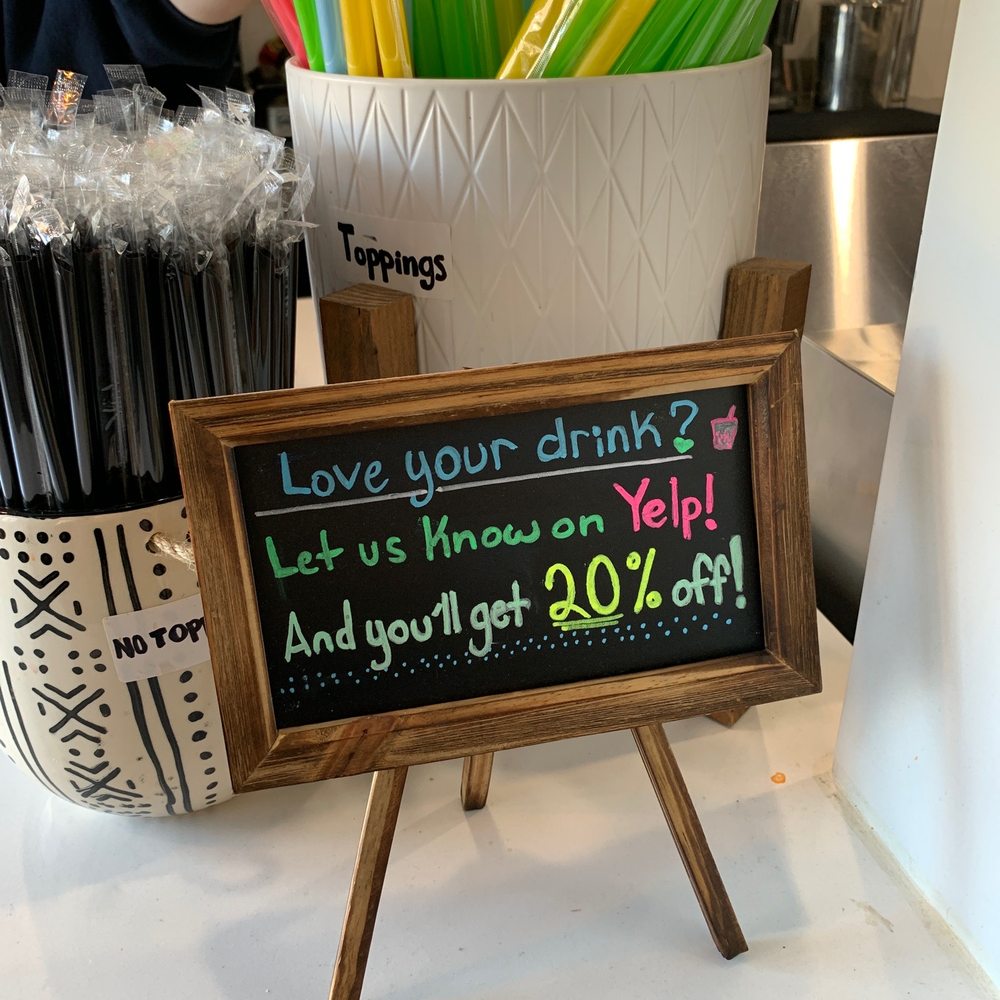 Toppings
Love your drink?
Let us Know on Yelp!
And you'll get 20% off!
NO TOPP